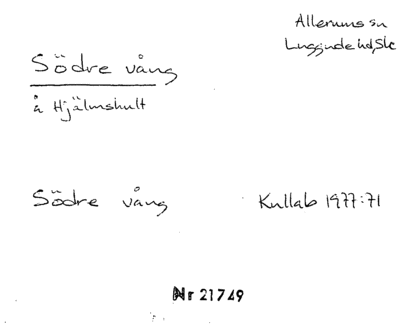 Allerums sn
Luggude hd, Sk
Södre vång
å Hjälmshult
Södre vång
Kullab 1977:71
Nr 21749